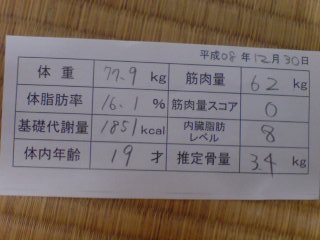 平成08年12月30日
体重 77.9 kg 筋肉量 62 kg
体脂肪率 16.1 % 筋肉量スコア 0
基礎代謝量 1851 kcal 内臓脂肪レベル 8
体内年齢 19 才 推定骨量 3.4 kg